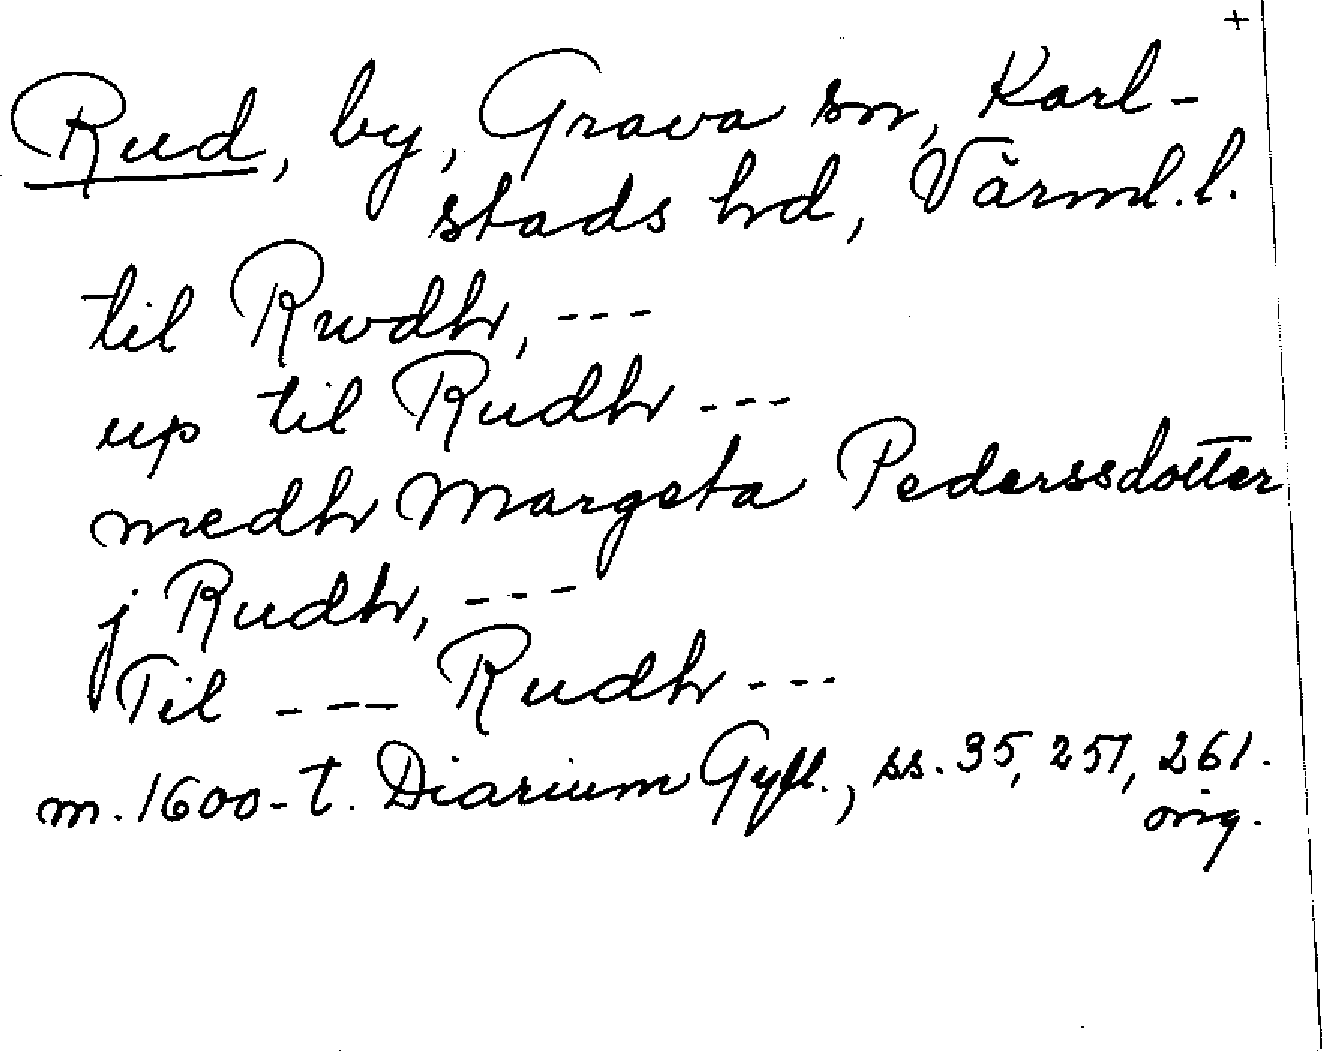 +
Rud, by, Grava sn, Karl-
stads hd, Värml. l.
til Rwdh, ---
up til Rudh ---
medh Margeta Pederssdotter
j Rudh, ---
Til --- Rudh ---
m. 1600-t. Diarium Gyll., ss. 35, 251, 261.
orig.